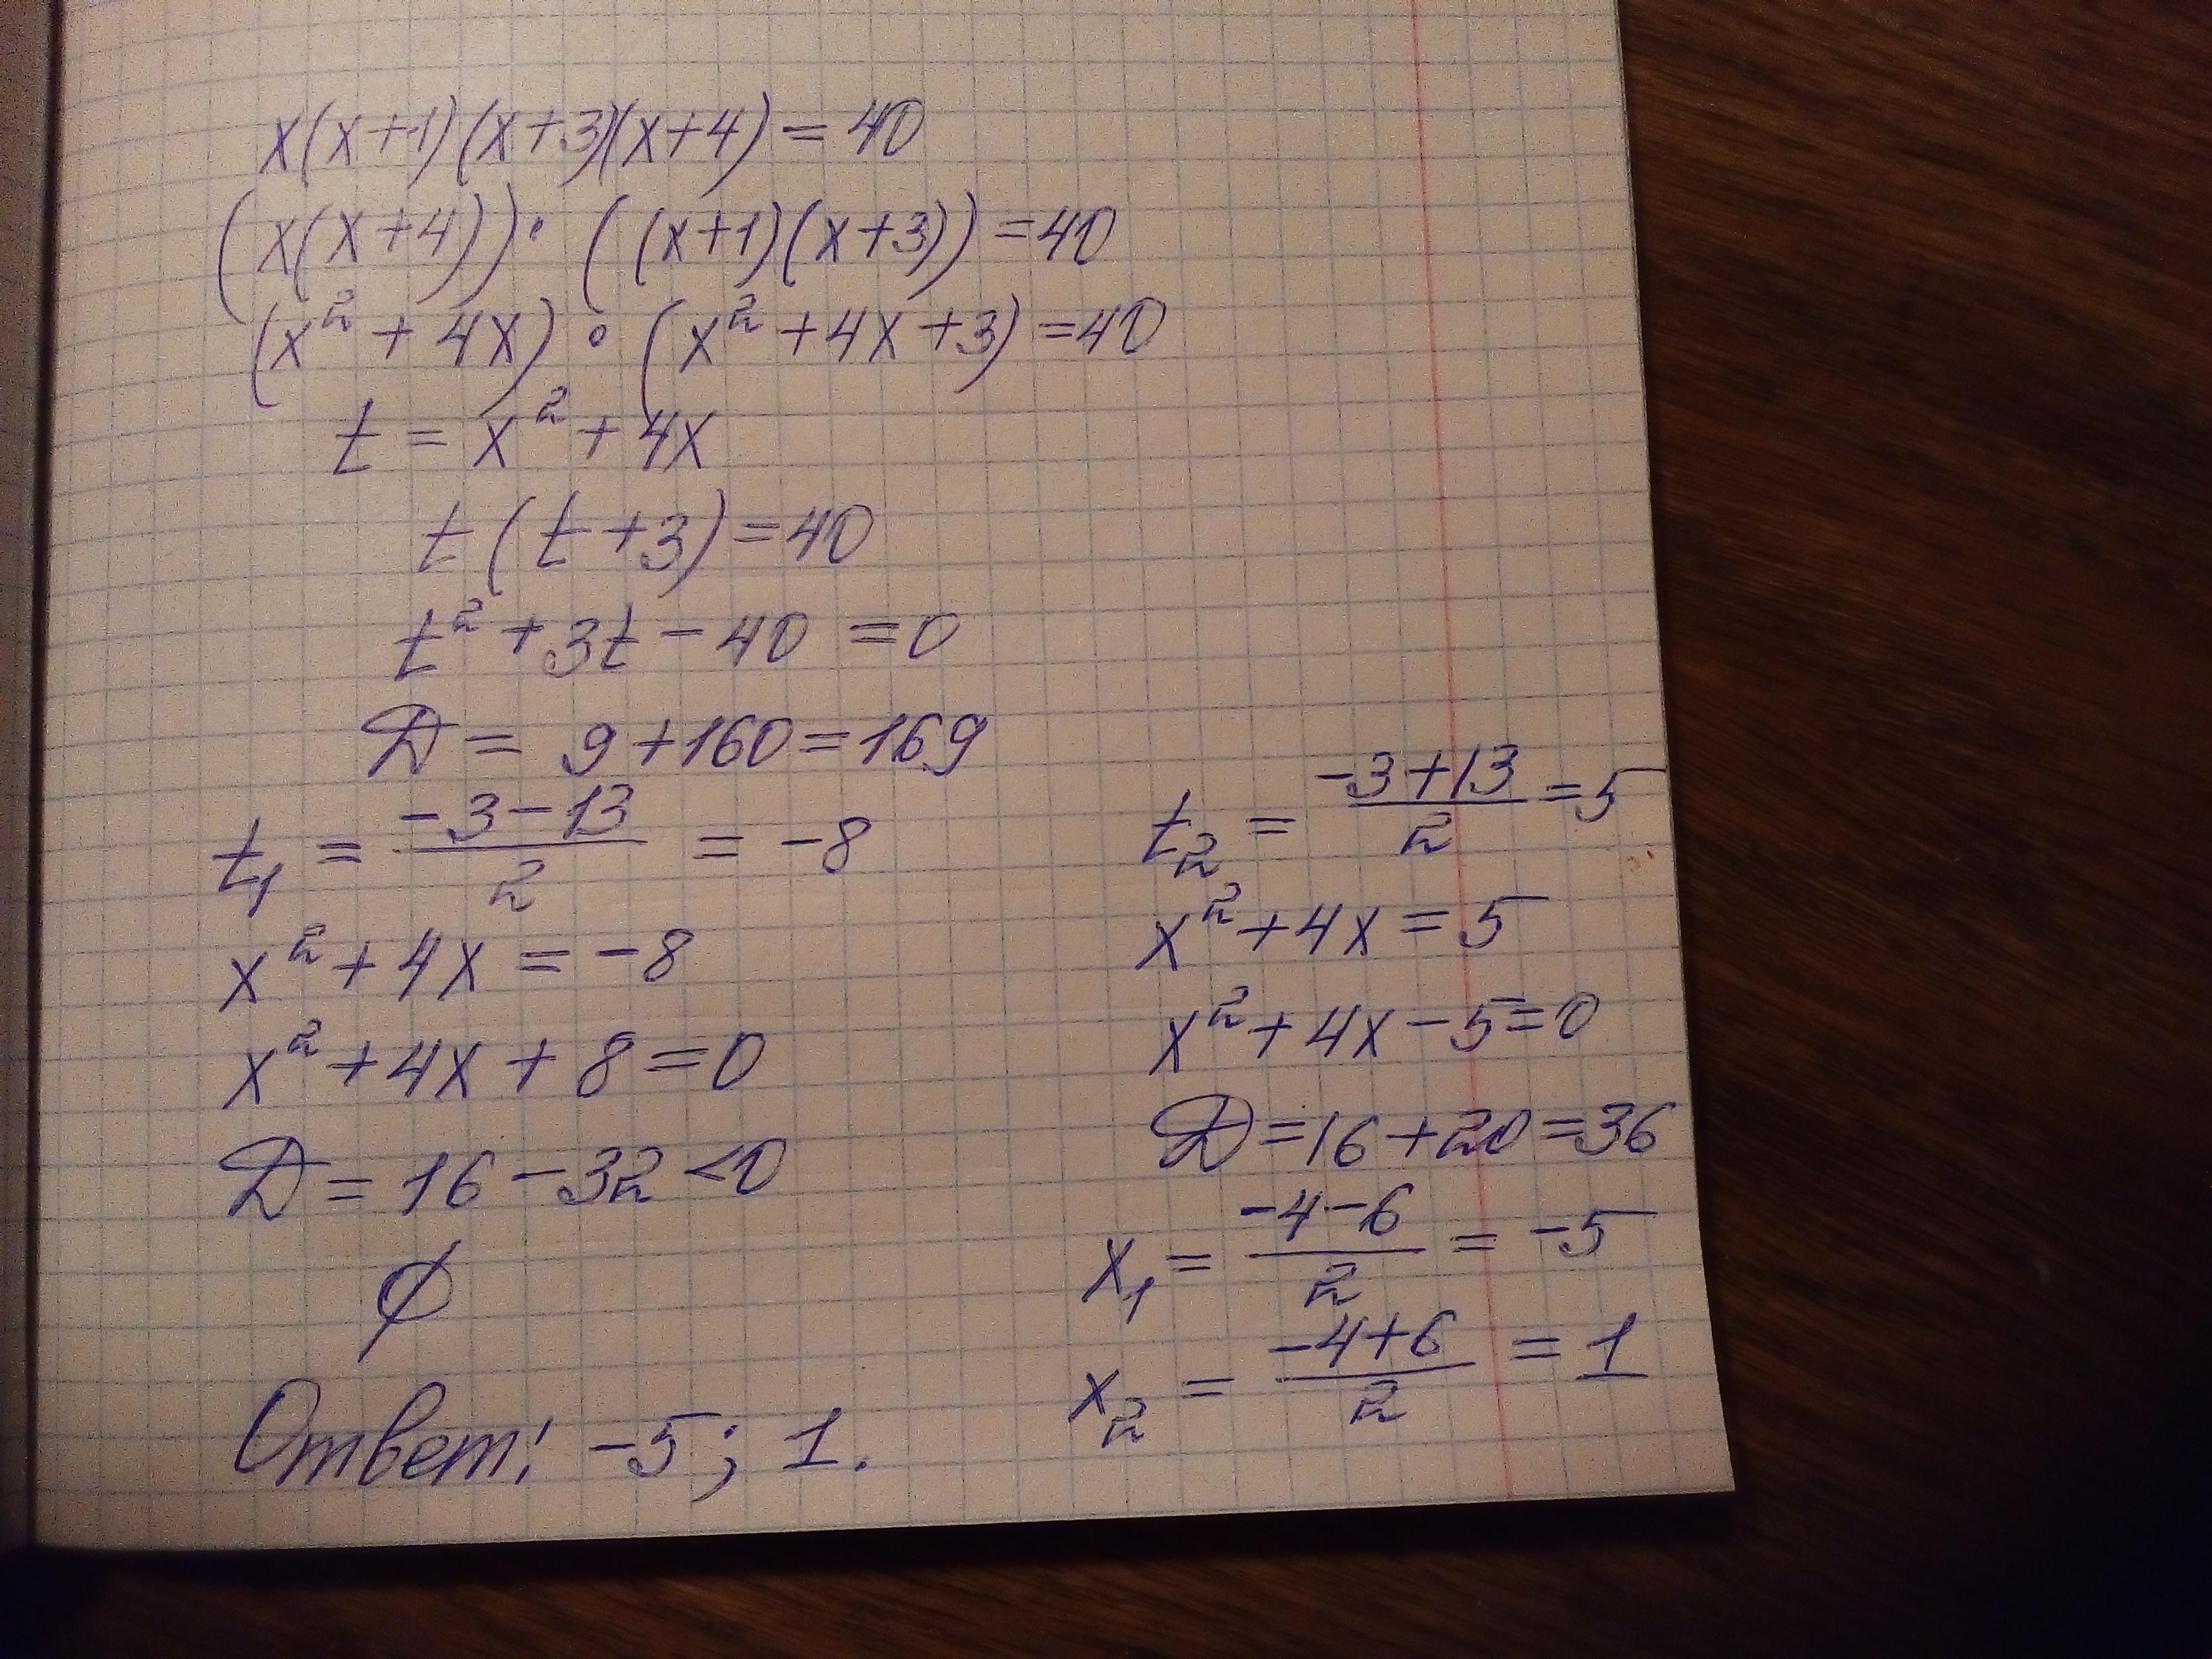 x(x+1)(x+3)(x+4)=40
(x(x+4))·((x+1)(x+3))=40
(x²+4x)·(x²+4x+3)=40
t=x²+4x
t(t+3)=40
t²+3t-40=0
D=9+160=169
t₁=(-3-13)/2=-8
x²+4x=-8
x²+4x+8=0
D=16-32<0
∅
t₂=(-3+13)/2=5
x²+4x=5
x²+4x-5=0
D=16+20=36
x₁=(-4-6)/2=-5
x₂=(-4+6)/2=1
Ответ: -5; 1.